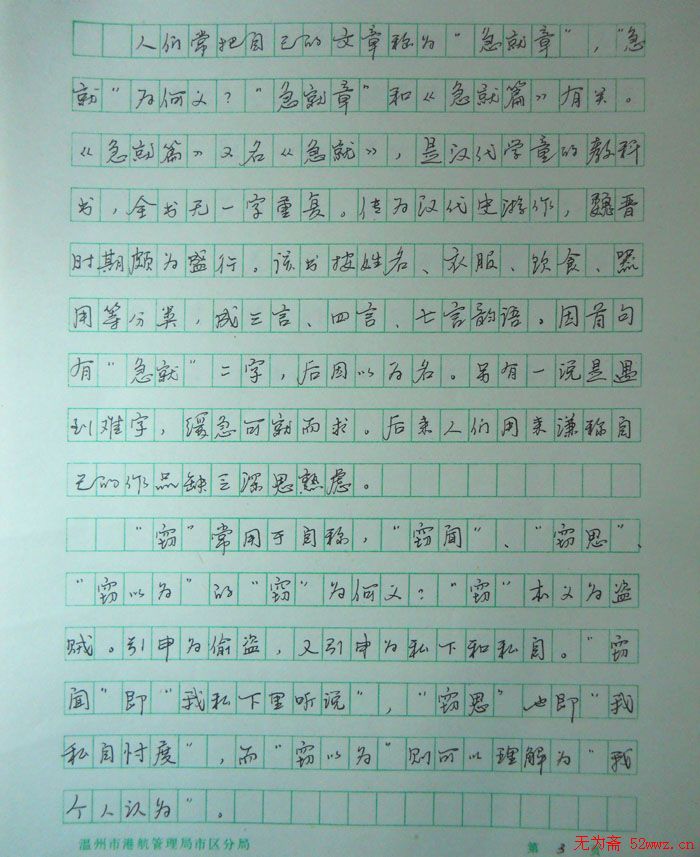 人们常把自己的文章称为“急就章”，“急
就”为何义？“急就章”和《急就篇》有关。
《急就篇》又名《急就》，是汉代学童的教科
书，全书无一字重复。传为汉代史游作，魏晋
时期颇为盛行。该书按姓名、衣服、饮食、器
用等分类，成三言、四言、七言韵语。因首句
有“急就”二字，后因以为名。另有一说是遇
到难字，缓急可就而求。后来人们用来谦称自
己的作品缺乏深思熟虑。
“窃”常用于自称，“窃闻”、“窃思”、
“窃以为”的“窃”为何义？“窃”本义为盗
贼。引申为偷盗，又引申为私下和私自。“窃
闻”即“我私下里听说”，“窃思”也即“我
私自忖度”，而“窃以为”则可以理解为“我
个人认为”。
温州市港航管理局市区分局 第 3 页
无为斋 52wwz.cn